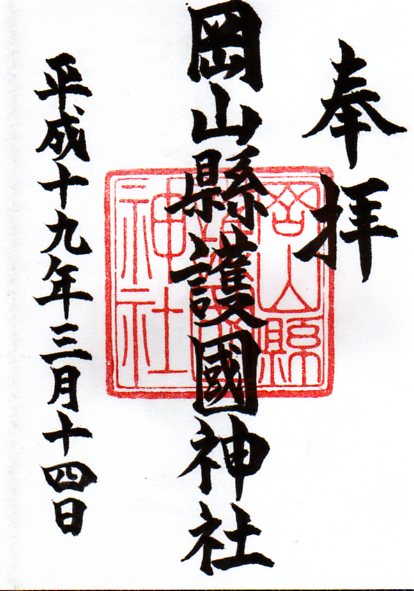 奉拝
岡山縣護國神社
平成十九年三月十四日
岡山縣
護國
神社